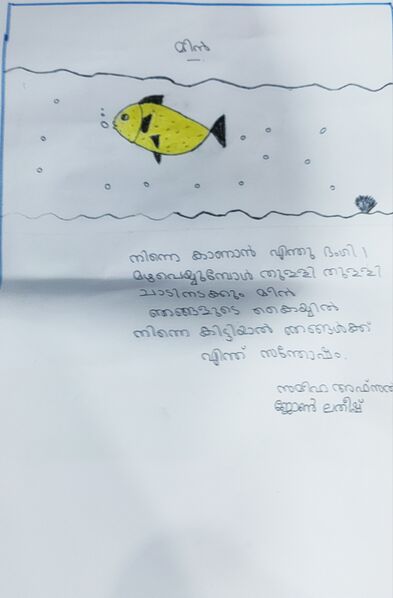 മീൻ
നിന്നെ കാണാൻ എന്തു ഭംഗി !
മഴപെയ്യുമ്പോൾ തുള്ളി തുള്ളി
ചാടിനടക്കും മീൻ
ഞങ്ങളുടെ കൈയ്യിൽ
നിന്നെ കിട്ടിയാൽ ഞങ്ങൾക്ക്
എന്ത് സന്തോഷം.
ജോൺ ലതീഷ്